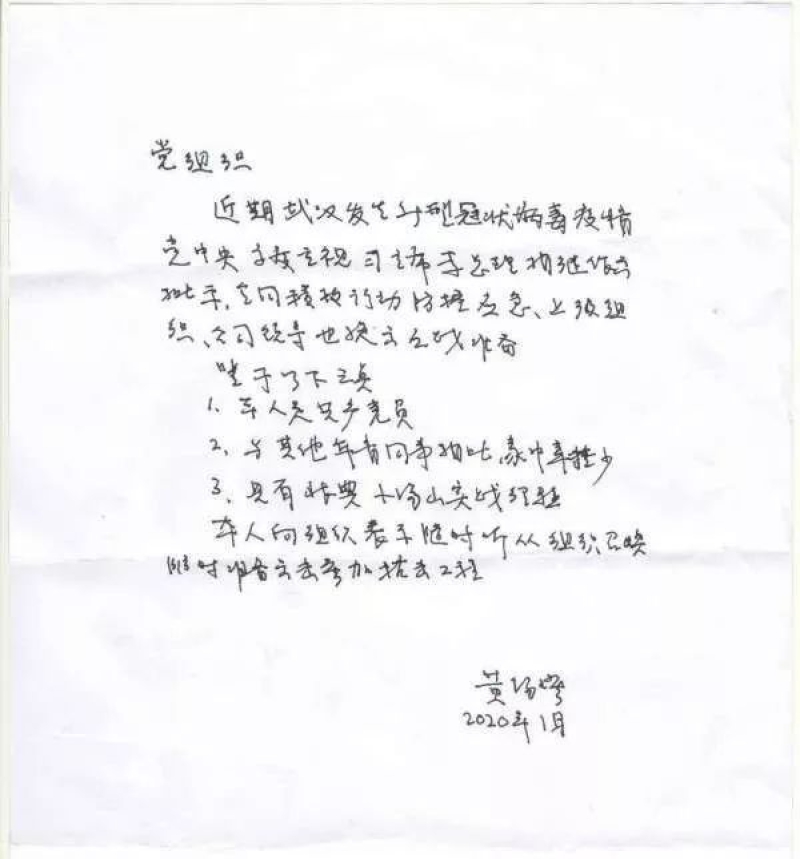 党组织
近期武汉发生新型冠状病毒疫情
党中央高度重视习主席李总理相继作出
批示,全国积极行动防控应急、上级组
织、公司领导也续立应战准备
鉴于以下三点
1、本人是共产党员
2、与其他年青同事相比,家中牵挂少
3、具有非典小汤山实战经验
本人向组织表示随时听从组织召唤
随时准备出击参加抗击工程
黄锡璆
2020年1月